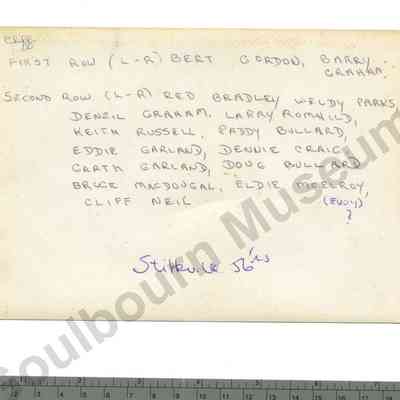 FIRST ROW (L-R) BERT GORDON, BARRY
GRAHAM
SECOND ROW (L-R) RED BRADLEY WELDY PARKS,
DENZIL GRAHAM, LARRY ROMHILD,
KEITH RUSSELL, PADDY BULLARD,
EDDIE GARLAND, DENNIE CRAIG
GARTH GARLAND, DOUG BULLARD
BRUCE MACDOUGAL, ELDIE MCELROY,
CLIFF NEIL (EVOY)
?
Stittsville 56'ers
Goulbourn Museum